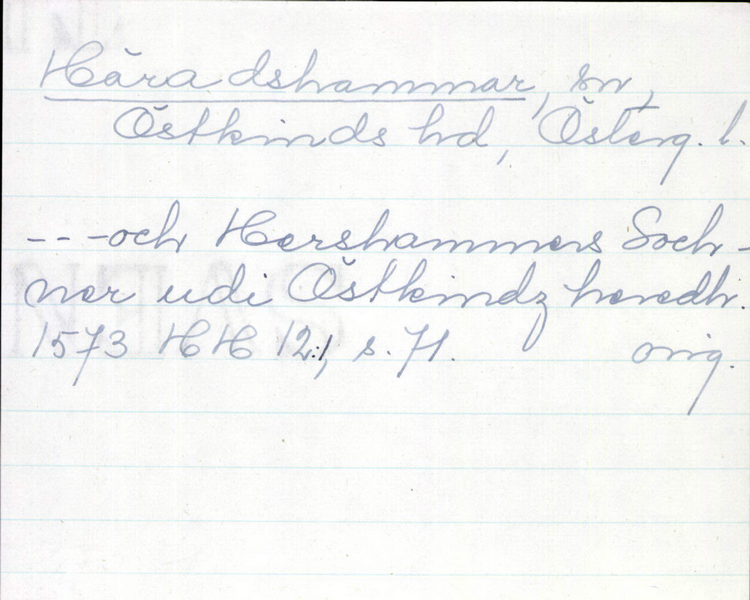 Häradshammar, sn,
Östkinds hd, Österg. l.
- - -och Hershammers Soch-
ner udi Östkindz heredh.
1573 HH 12:1, s. 71. orig.